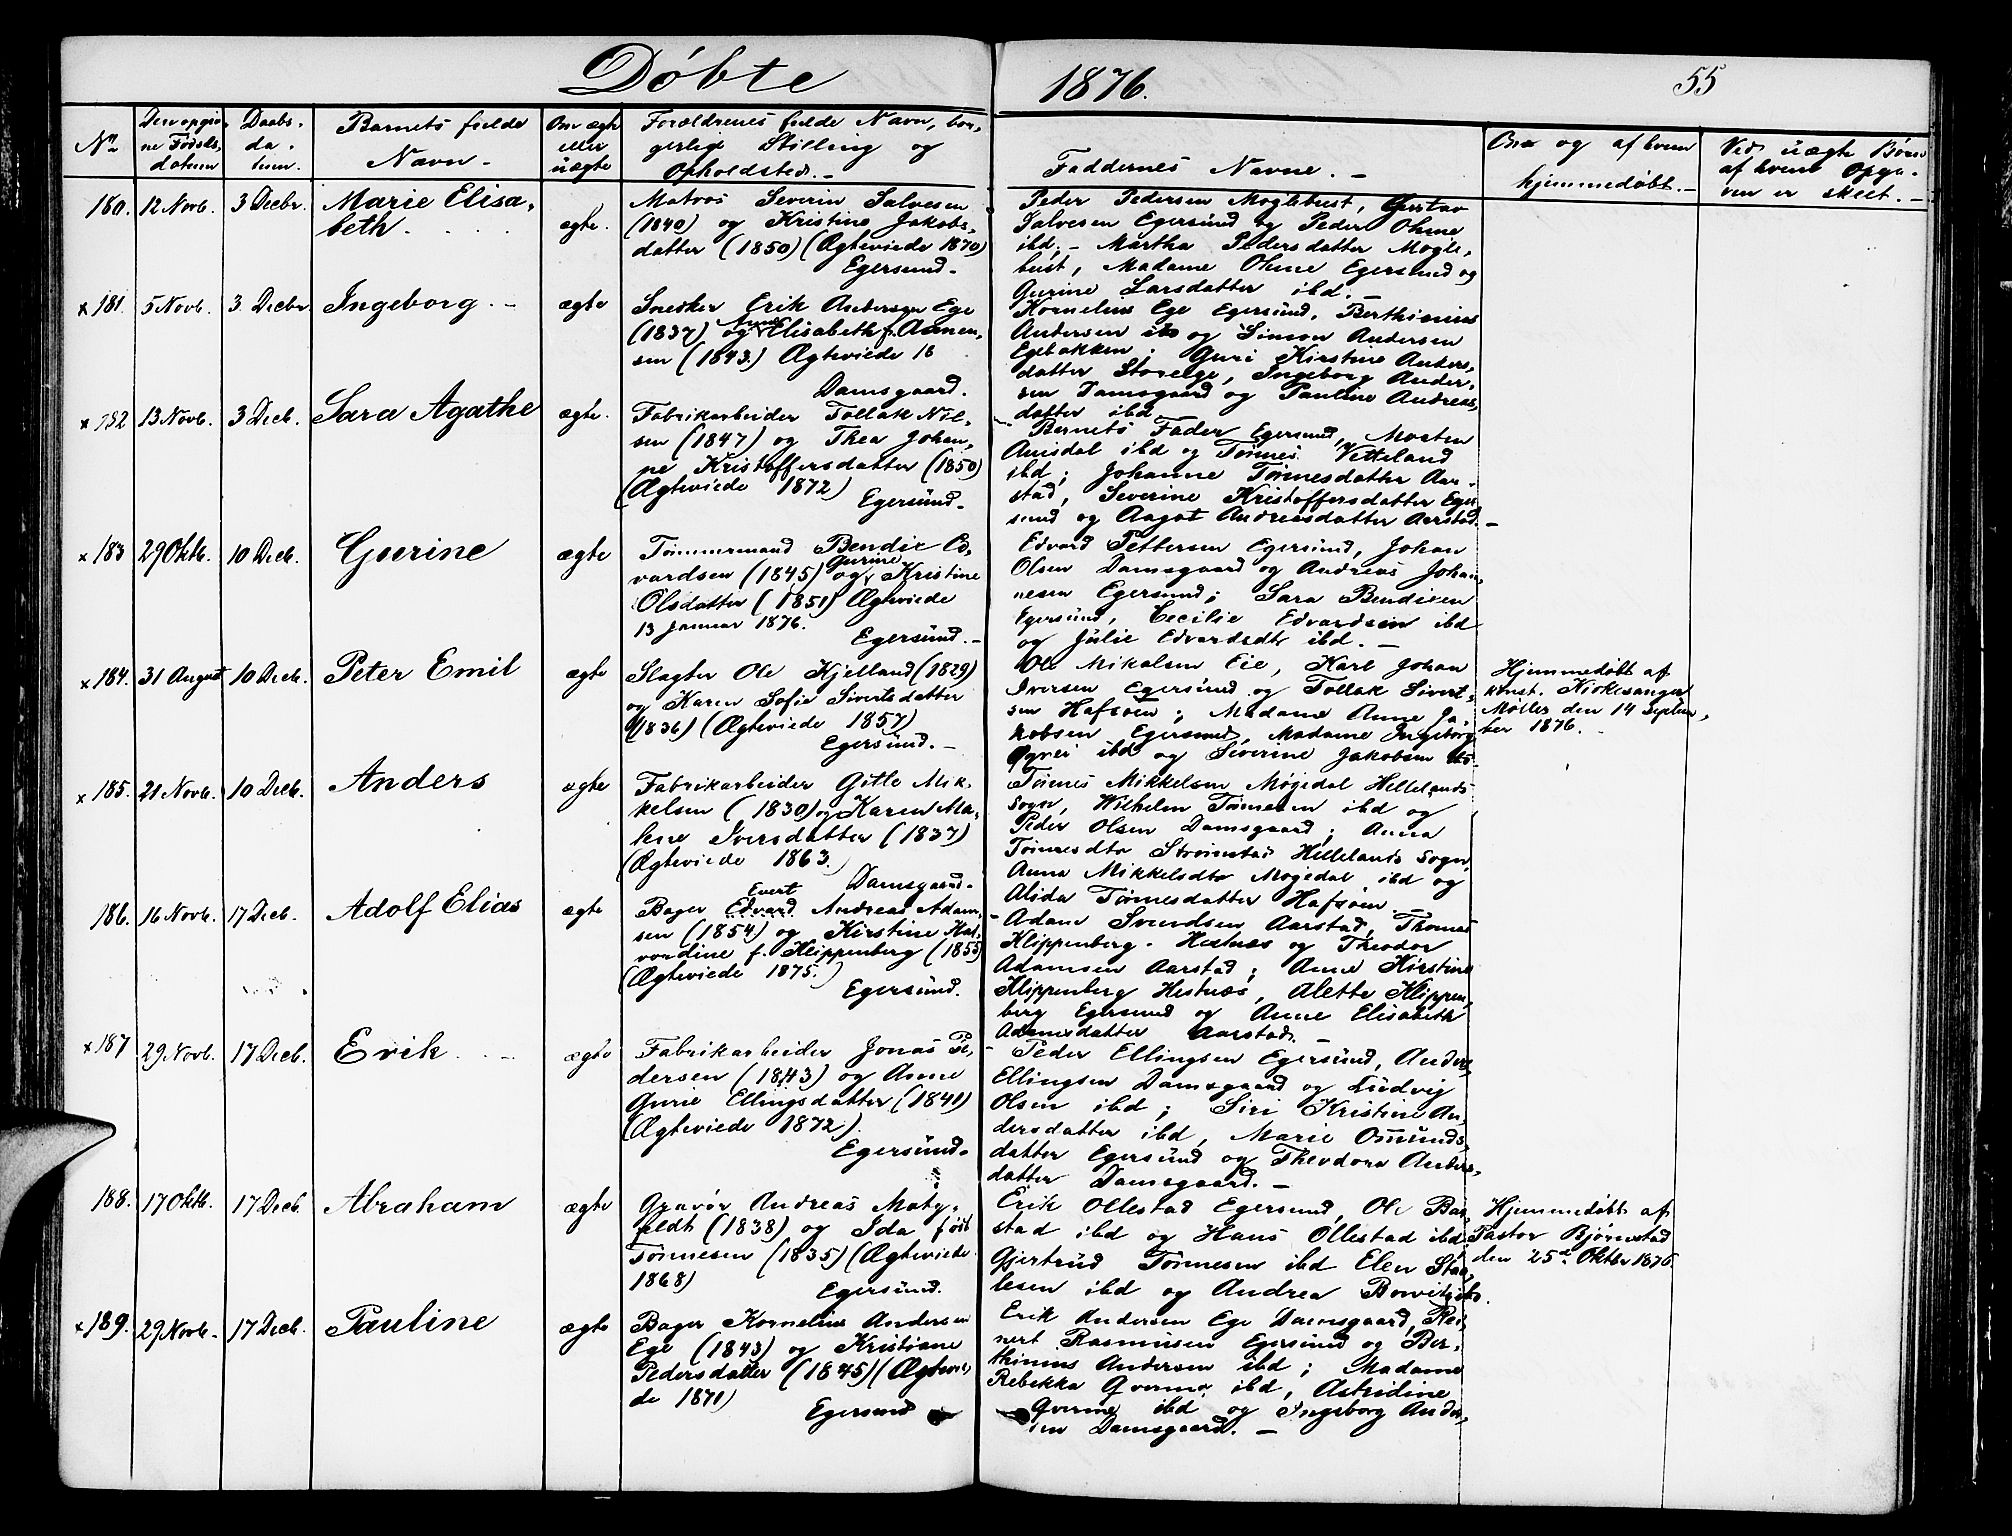 Døbte
1876.
55
No
Den opgiv-
ne Fødsels-
datum
Daabs-
da-
tum.
Barnets fulde
Navn -
Om ægte
eller
uægte
Forældrenes fulde Navn, bor-
gerlige Stilling og
Opholdsted. -
Faddernes Navne. -
Om og af hvem
hjemmedøbt. -
Ved uægte Børn
af hvem Opga-
ven er skeet. -
180. 12 Novb. 3 Decbr. Marie Elisa-
beth.
ægte.
Matros Severin Salvesen
(1840) og Kristine Jakobs-
datter (1850) (Ægteviede 1870)
Egersund. -
Peder Pedersen Møglebust, Gustav
Salvesen Egersund og Peder Ohme
ibd. - Martha Pedersdatter Mogle-
bust, Madame Ohme Egersund og
Gurine Larsdatter ibd. -
x 181. 5 Novb. 3 Decbr Ingeborg. -
ægte
Snedker Erik Andersen Ege
(1837) og Elisabeth f. Asmen-
sen (1843.) Ægteviede 18
Damsgaard.
Kornelius Ege Egersund, Berthinius
Andersen ibd og Simon Andersen
Egebakken; Guri Kirstine Anders-
datter Storeege, Ingeborg Ander-
sen Damsgaard og Pauline Andreas-
datter ibd
x 182 13 Novb. 3 Decb. Sara Agathe
ægte.
Fabrikarbeider Tollak Nil-
sen (1847) og Thea Johan-
ne Kristoffersdatter (1850)
(Ægteviede 1872)
Egersund. -
Barnets Fader Egersund, Morten
Aaisdal ibd og Tønnes Vetteland
ibd; Johanne Tønnesdatter Aar-
stad, Severine Kristoffersdatter Eger-
sund og Aagot Andreasdatter Aarstad. -
x 183 29 Oktb. 10 Decb. Gurine
ægte
Tømmermand Bendix Ed-
vardsen (1845) og Gurine Kristine
Olsdatter (1851) Ægteviede
13 Januar 1876.
Egersund. -
Edvard Pettersen Egersund, Johan
Olsen Damsgaard og Andreas Johan-
nesen Egersund; Sara Bendixen
Egersund, Cecilie Edvardsen ibd
og Julie Edvardsdtr ibd. -
x 184. 31 August 10 Decb. Peter Emil
ægte
Slagter Ole Kjelland (1829)
og Karen Sofie Sivertsdatter
(1836) (Ægteviede 1857)
Egersund. -
Ole Mikalsen Eie, Karl Johan
Iversen Egersund og Tollak Sivert-
sen Hafsøen; Madame Anne Ja-
kobsen Egersund, Madame Ingeborg
Qvei ibd og Severine Jakobsen ibd
Hjemmedøbt af
konst. Kirkesanger
Møller den 14 Septem-
ber 1876.
x 185. 21 Novb. 10 Decb. Anders
ægte
Fabrikarbeider Gitle Mik-
kelsen (1830) og Karen Ma-
lene Iversdatter (1837)
(Ægteviede 1863.)
Damsgaard. -
Tønnes Mikkelsen Møgedal Hellelands
Sogn, Wilhelm Tønnesen ibd og
Peder Olsen Damsgaard; Anna
Tønnesdtr Strømstad Hellelands Sogn,
Anna Mikkelsdtr Møgedal ibd og
Alida Tønnesdatter Hafsøen -
186. 16 Novb. 17 Decb. Adolf Elias
ægte
Evert
Bager Edvard Andreas Adam-
sen (1854) og Kirstine Hal-
vordine f. Klippenberg (1855)
(Ægteviede 1875.)
Egersund.
Adam Svendsen Aarstad, Thomas
Klippenberg - Hestnæs og Theodor
Adamsen Aarstad; Anne Kirstine
Klippenberg Hestnæs, Alette Klippen-
berg Egersund og Anne Elisabeth
Adamsdatter Aarstad. -
x 187 29 Novb. 17 Decb. Erik. -
ægte
Fabrikarbeider Jonas Pe-
dersen (1843) og Anne
Gurie Ellingsdatter (1841)
(Ægteviede 1872).
Egersund. -
Peder Ellingsen Egersund, Anders
Ellingsen Damsgaard og Ludvig
Olsen ibd; Siri Kristine An-
dersdatter ibd, Marie Omunds-
datter Egersund og Theodora Anders-
datter Damsgaard. -
188. 17 Oktb. 17 Decb. Abraham
ægte
Gravør Andreas Maty-
feldt (1838) og Ida født
Tønnesen (1835) (Ægteviede
1868)
Egersund.
Erik Ollestad Egersund, Ole Bar-
stad ibd og Hans Ollestad ibd
Gjertrud Tønnesen ibd Elen Staa-
lesen ibd og Andrea
Hjemmedøbt af
Pastor Bjørnstad
den 25de Oktbr 1876.
x 189. 29 Novb. 17 Decb. Pauline
ægte
Bager Kornelius Andersen
Ege (1843) og Kristiane
Pedersdatter (1845) (Ægtevie-
de 1871)
Egersund
Erik Andersen Ege Damsgaard, Rei-
nert Rasmussen Egersund og Ber-
thinius Andersen ibd; Madame
Rebekka Qverme ibd, Astridine
Qverme ibd og Ingeborg Ander-
sen Damsgaard. -